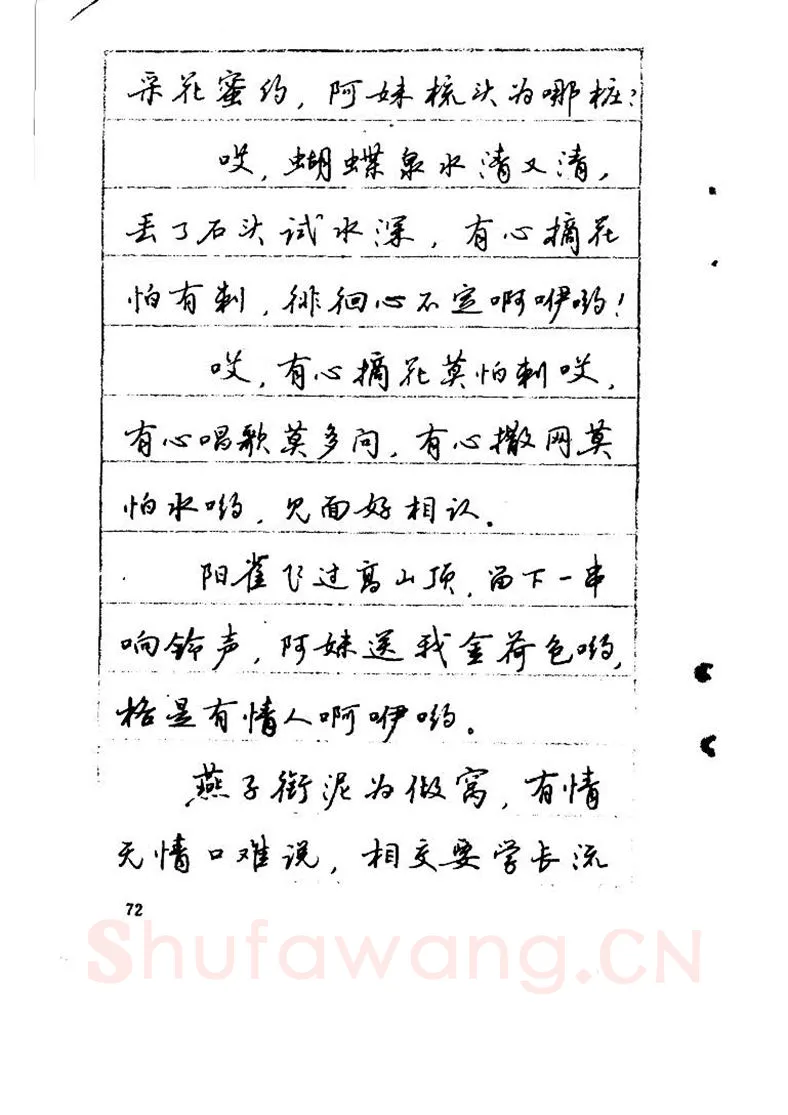 采花蜜的，阿妹梳头为哪桩？
哎，蝴蝶泉水清又清，
丢了石头试水深，有心摘花
怕有刺，徘徊心不定啊咿哟！
哎，有心摘花莫怕刺哎，
有心唱歌莫多问，有心撒网莫
怕水哟，见面好相认。
阳雀飞过高山顶，留下一串
响铃声，阿妹送我金荷包哟，
格是有情人啊咿哟。
燕子衔泥为做窝，有情
无情口难说，相交要学长流
72
Shufawang.CN